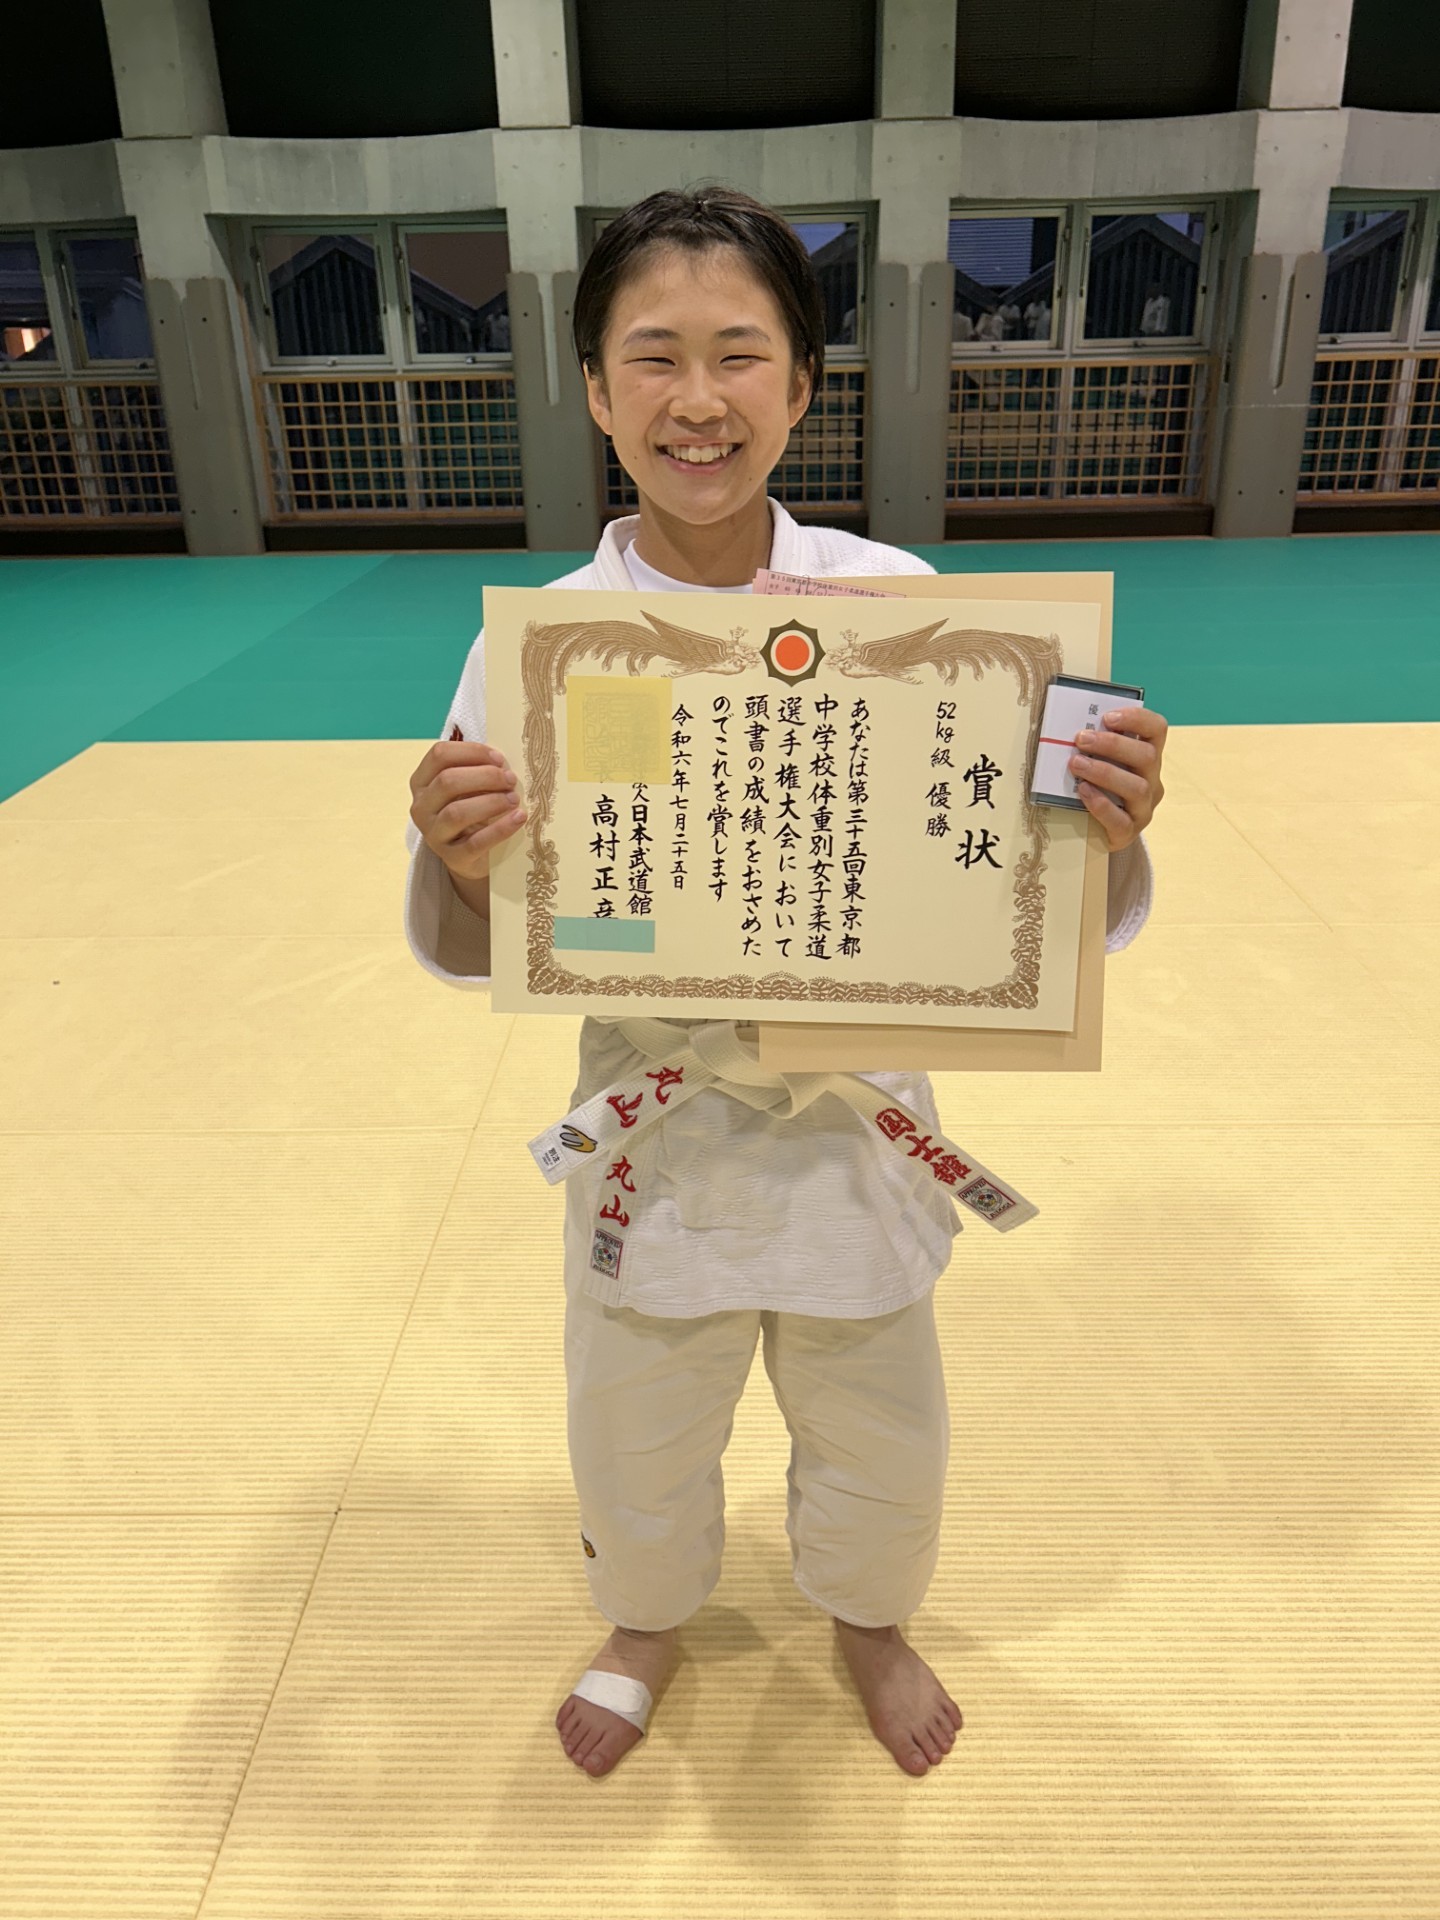 賞状
52kg級 優勝
あなたは第三十五回東京都
中学校体重別女子柔道
選手権大会において
頭書の成績をおさめた
のでこれを賞します
令和六年七月二十五日
法人日本武道館
高村正彦
優勝
丸山
丸山
国士舘
APPROVED
APPROVED